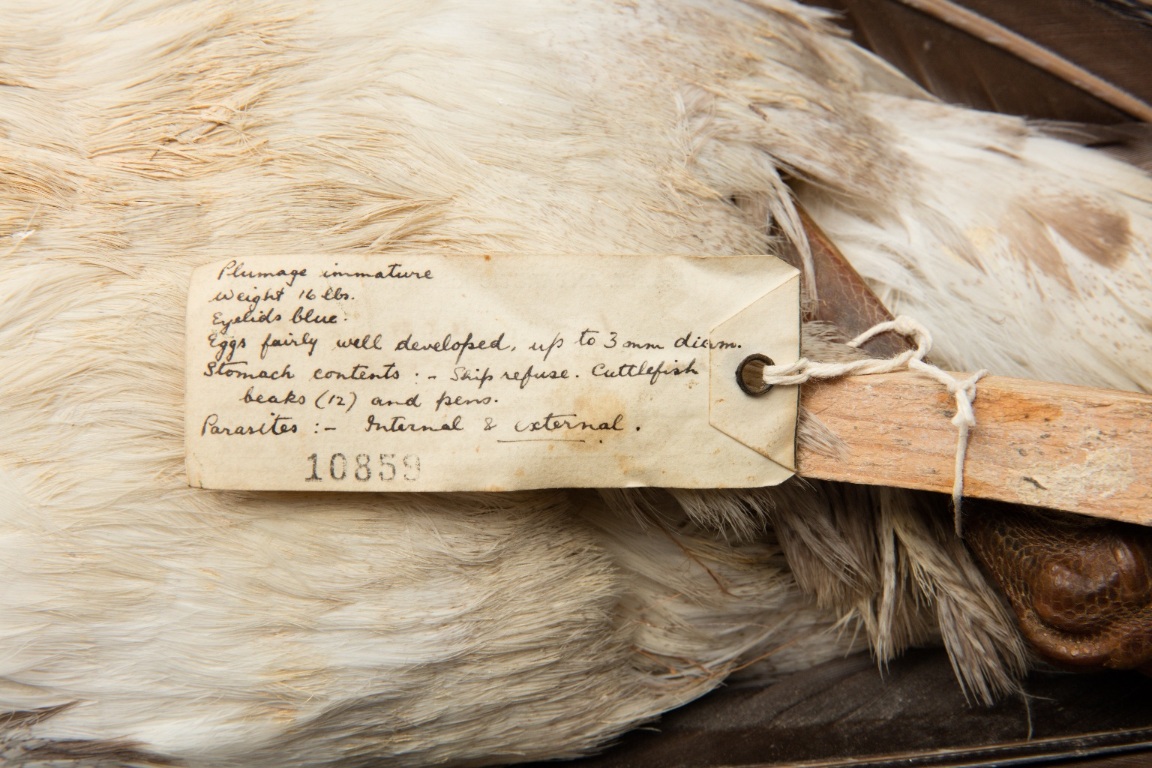 Plumage immature
Weight 16 lbs.
Eyelids blue.
Eggs fairly well developed, up to 3 mm diam.
Stomach contents :- Ship refuse. Cuttlefish
beaks (12) and pens.
Parasites :- Internal & external.
10859